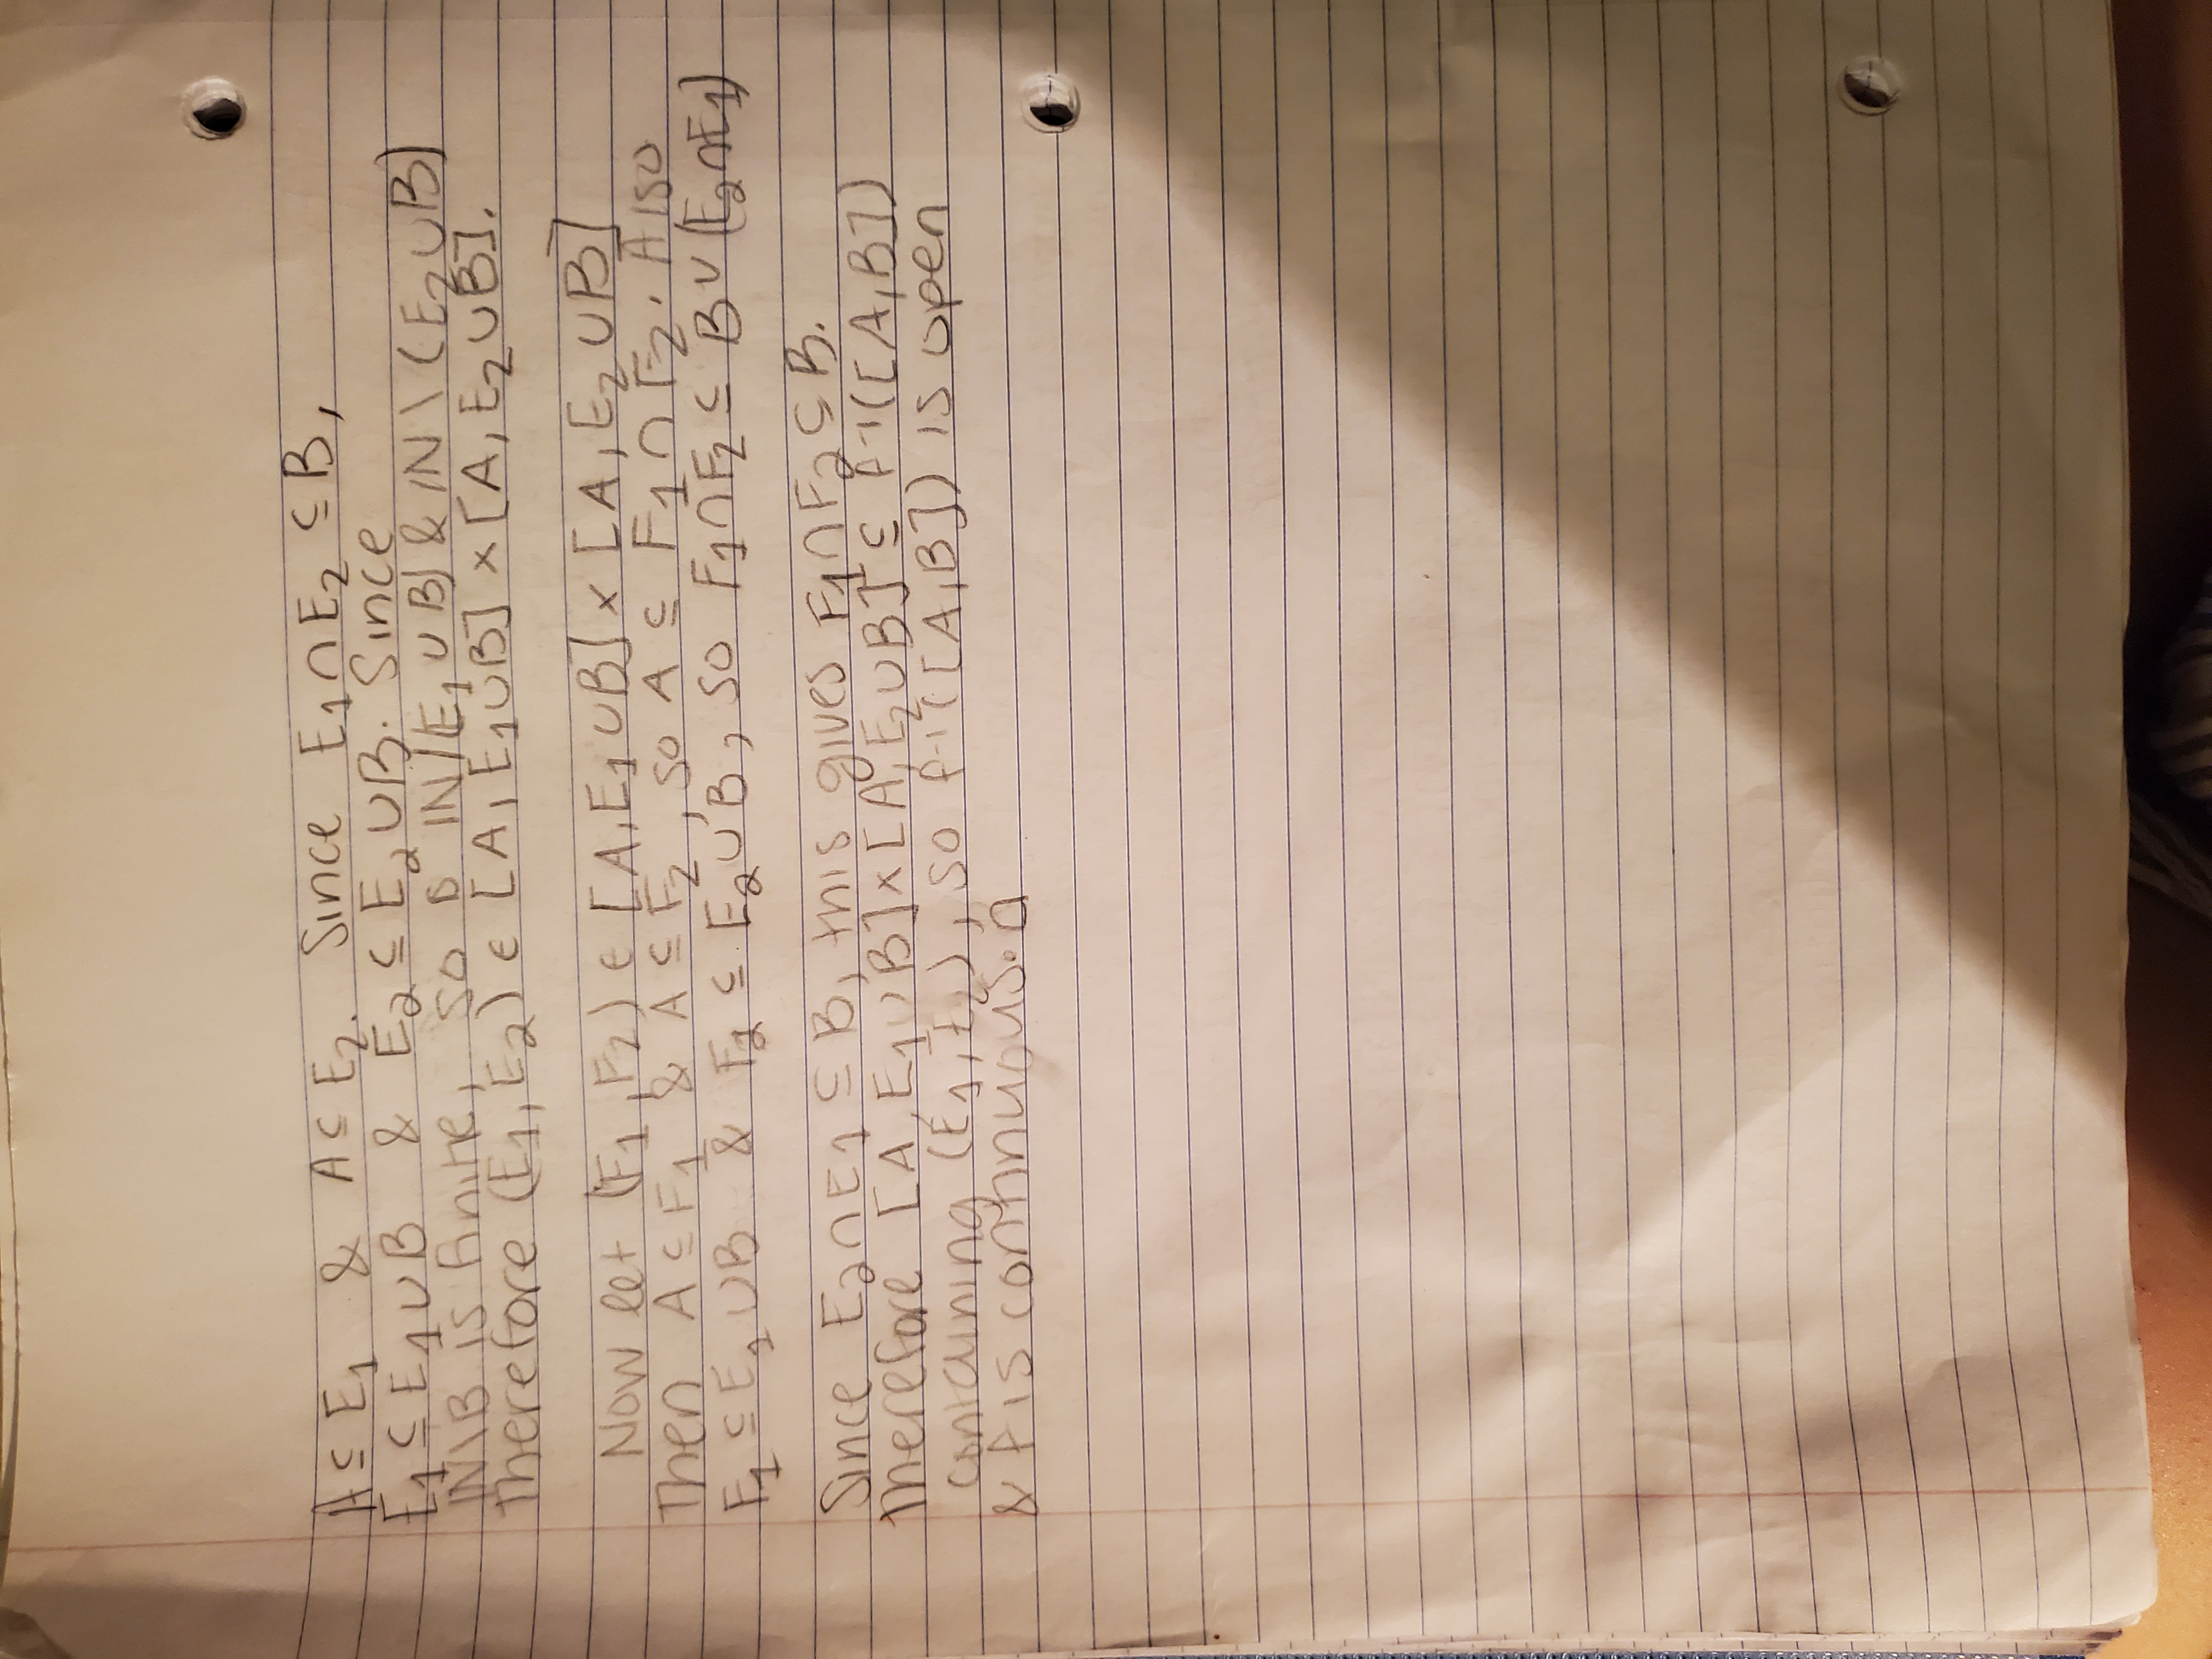 A ⊆ E₁ & A ⊆ E₂. Since E₁∩E₂ ⊆ B,
E₁ ⊆ E₁∪B & E₂ ⊆ E₂∪B. Since
ℕ\B is finite, so is ℕ\(E₁∪B) & ℕ\(E₂∪B)
Therefore (E₁,E₂) ∈ [A,E₁∪B] × [A,E₂∪B].
Now let (F₁,F₂) ∈ [A,E₁∪B] × [A,E₂∪B]
Then A ⊆ F₁ & A ⊆ F₂, so A ⊆ F₁∩F₂. Also
F₁ ⊆ E₁∪B & F₂ ⊆ E₂∪B, so F₁∩F₂ ⊆ B∪(E₂∩E₁)
Since E₂∩E₁ ⊆ B, this gives F₁∩F₂ ⊆ B.
Therefore [A,E₁∪B]×[A,E₂∪B] ⊆ f⁻¹([A,B])
containing (E₁,E₂), so f⁻¹([A,B]) is open
& f is continuous. □